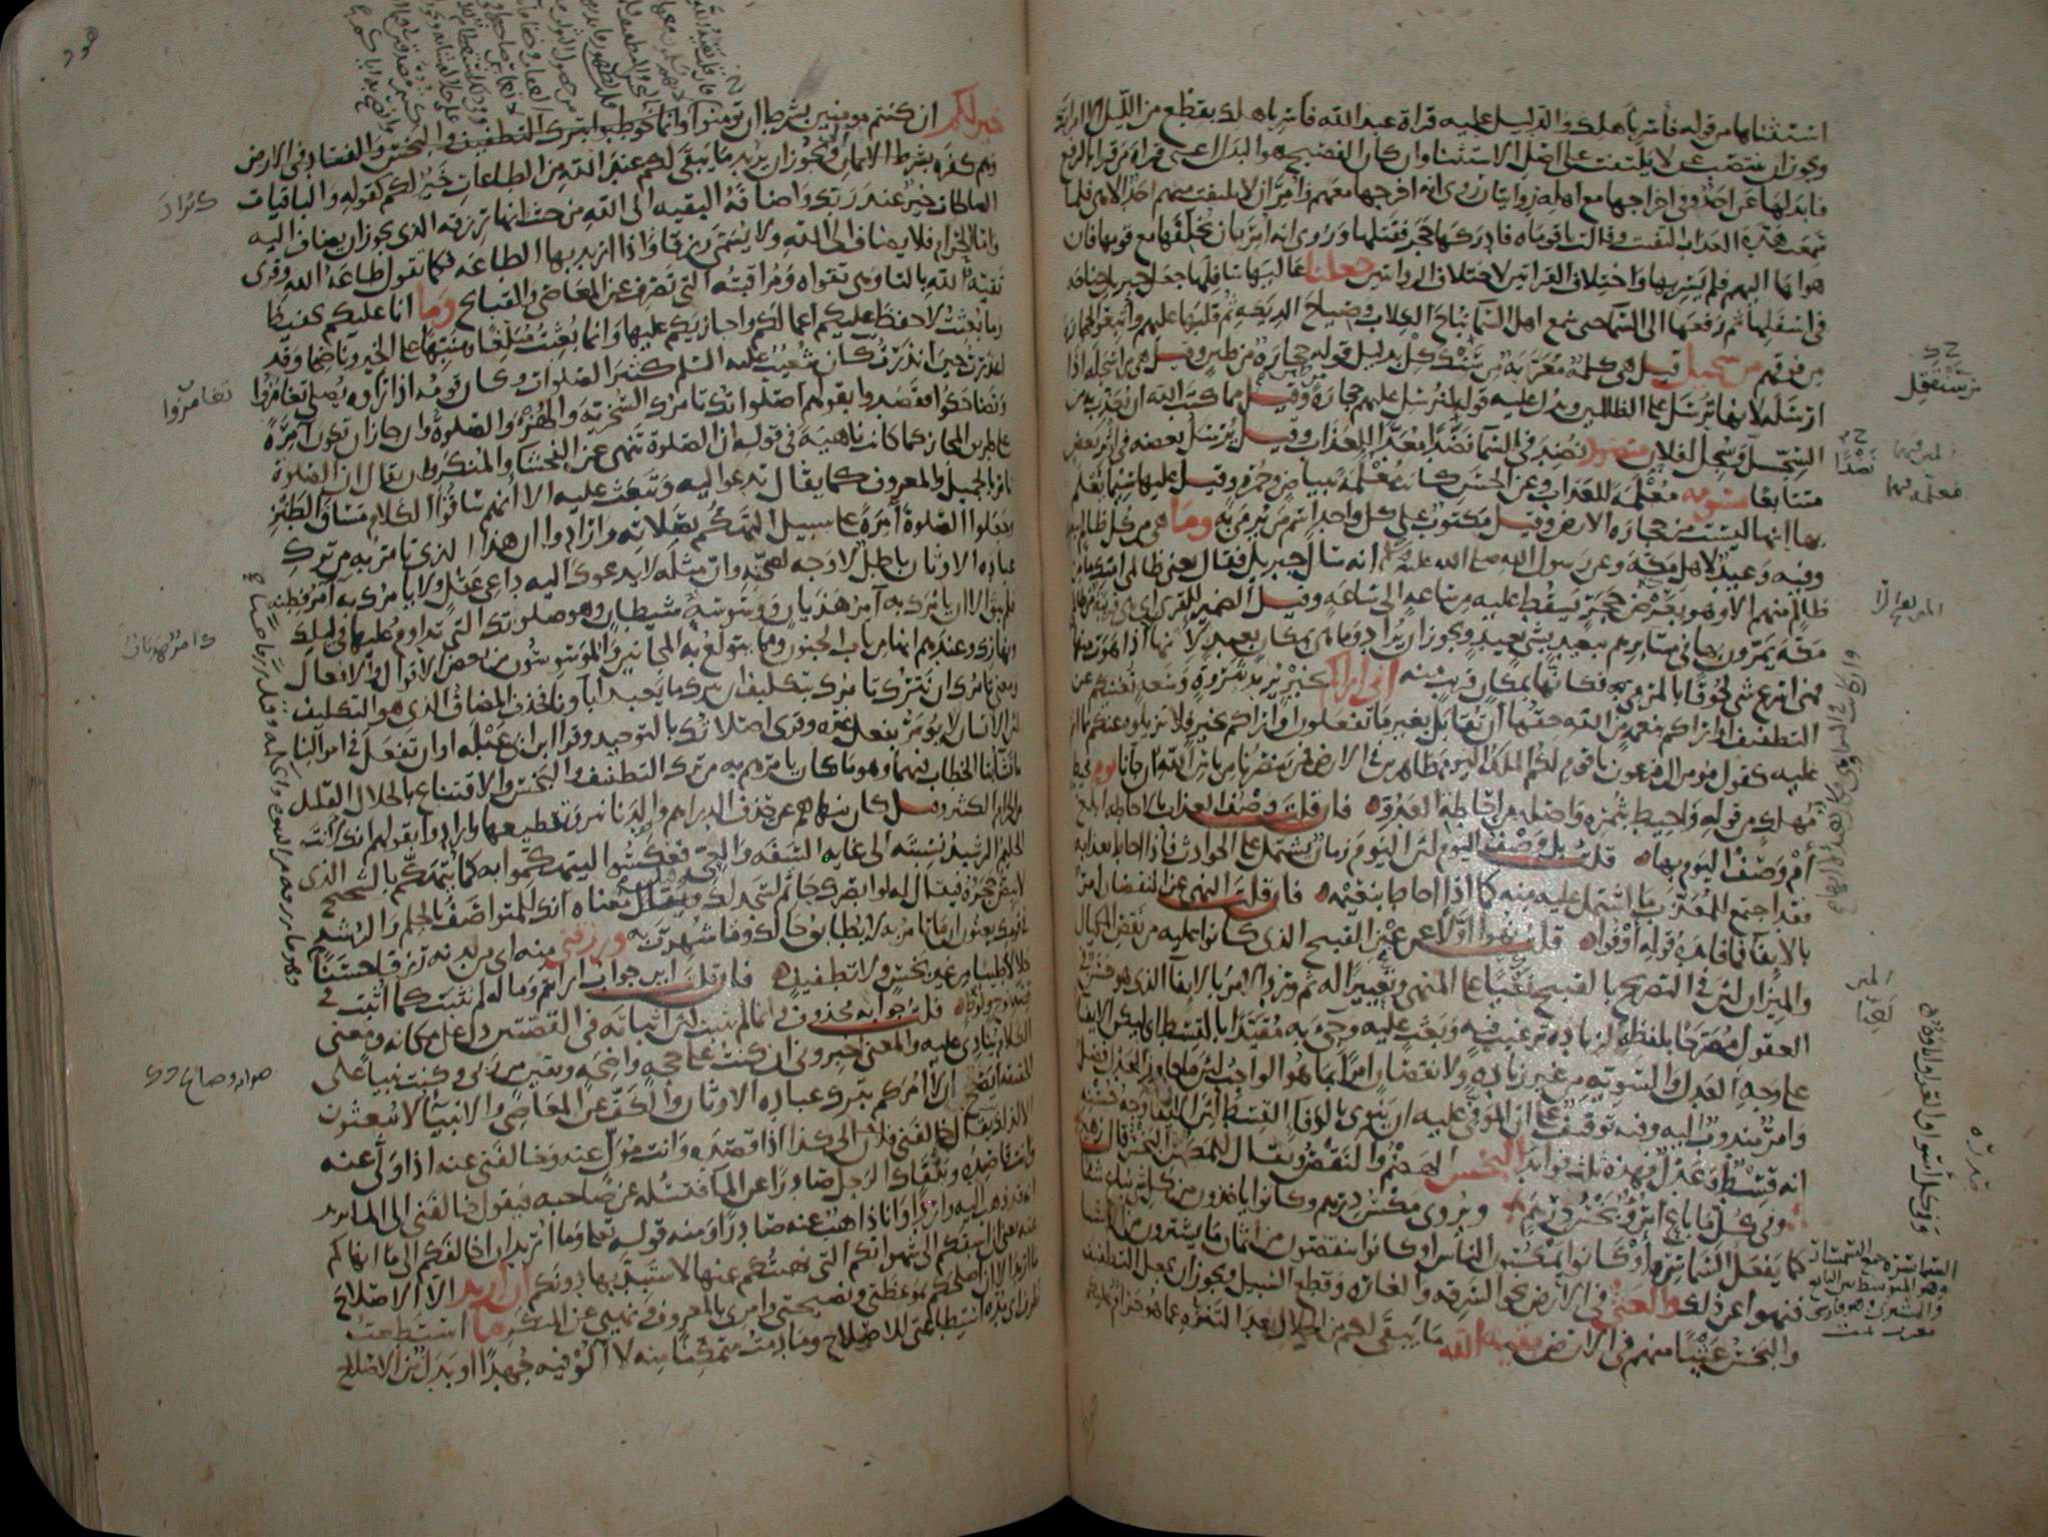 استثناها من قوله فاسر باهلك والدليل عليه قراة عبد الله فاسر باهلك بقطع من الليل الا امراتك
ويجوز ان ينتصب عن لا يلتفت على اصل الاستثنا وان كان الفصيح هو البدل اعنى قراة من قرا بالرفع
فابدلها عن احد وفى اخراجها مع اهله روايتان روى انه اخرجها معهم وامر ان لا يلتفت منهم احد الا هى فلما
سمعت هدة العذاب التفتت وقالت يا قوماه فادركها حجر فقتلها وروى انه امر بان يخلفها مع قومها فان
هواها اليهم فلم يسر بها واختلاف القراتين لاختلاف الروايتين جعلنا عاليها سافلها جعل جبريل جناحه
فى اسفلها ثم رفعها الى السما حتى سمع اهل السما نباح الكلاب وصياح الديكة ثم قلبها عليهم واتبعوا الحجارة
من فوقهم من سجيل قيل هى كلمة معربة من سنك كل بدليل قوله حجارة من طين وقيل هى من اسجله اذا
ارسله لانها ترسل على الظالمين ويدل عليه قوله لنرسل عليهم حجارة وقيل مما كتب الله ان يعذب به من
السجل وسجل لفلان منضود نضد فى السما نضدا معدا للعذاب وقيل يرسل بعضه فى اثر بعض
متتابعا مسومة معلمة للعذاب وعن الحسن كانت معلمة ببياض وحمرة وقيل عليها سيما يعلم
بها انها ليست من حجارة الارض وقيل مكتوب على كل واحد اسم من يرمى به وما هى من كل ظالم ببعيد
وفيه وعيد لاهل مكة وعن رسول الله صلى الله عليه انه سال جبريل فقال يعنى ظالمى امتك ما من
ظالم منهم الا وهو بعرض حجر يسقط عليه من ساعة الى ساعة وقيل الضمير للقرى اى هى قريبة من ظالمى
مكة يمرون بها فى مسايرهم ببعيد بشى بعيد ويجوز ان يراد وما هى بمكان بعيد لانها اذا هوت منها
فهى اسرع شى لحوقا بالمرمى به فكانها بمكان قريب منه انى اراكم بخير يريد بثروة وسعة تغنيكم عن
التطفيف او اراكم بنعمة من الله حقها ان تقابل بغير ما تفعلون او اراكم بخير فلا تزيلوه عنكم بما انتم
عليه كقول مومن ال فرعون يا قوم لكم الملك اليوم ظاهرين فى الارض فمن ينصرنا من باس الله ان جانا يوم محيط
مهلك من قوله واحيط بثمره واصله من احاطة العدو فان قلت وصف العذاب بالاحاطة ابلغ
ام وصف اليوم بها قلت بل وصف اليوم لان اليوم زمان يشتمل على الحوادث فاذا احاط بعذابه
فقد اجتمع للمعذب ما اشتمل عليه منه كما اذا احاط بنعيمه فان قلت النهى عن النقصان امر
بالايفا فما فايدة قوله اوفوا قلت نهوا اولا عن عين القبيح الذى كانوا عليه من نقص المكيال
والميزان لان فى التصريح بالقبيح نعيا على المنهى وتعييرا له ثم ورد الامر بالايفا الذى هو حسن فى
العقول مصرحا بلفظه لزيادة ترغيب فيه وبعث عليه وجى به مقيدا بالقسط اى ليكن الايفا
على وجه العدل والتسوية من غير زيادة ولا نقصان امرا بما هو الواجب لان ما جاوز العدل فضل
وامر مندوب اليه وفيه توقيف على ان الموفى عليه ان ينوى بالوفا القسط لان الايفا وجه حسنه
انه قسط وعدل فهذه ثلث فوايد البخس الهضم والنقص ويقال للمكس البخس قال زهير
وفى كل ما باع امرو بخس درهم ويروى مكس درهم وكانوا ياخذون من كل شى يباع شيا
كما يفعل السماسرة او كانوا يمكسون الناس او كانوا ينقصون من اثمان ما يشترون من الاشيا
فنهوا عن ذلك والعثى فى الارض نحو السرقة والغارة وقطع السبيل ويجوز ان يجعل التطفيف
والبخس عثيا منهم فى الارض بقية الله ما يبقى لكم من الحلال بعد التنزه عما هو حرام عليكم
من سنكيل
نضدا
السماسرة جمع السمسار
وهو المتوسط بين البايع
والمشترى وهو فارسى
معرب
خير لكم ان كنتم مومنين بشرط ان تومنوا وانما خوطبوا بترك التطفيف والبخس والفساد فى الارض
وهم كفرة بشرط الايمان ويجوز ان يريد ما يبقى لكم عند الله من الطاعات خير لكم كقوله والباقيات
الصالحات خير عند ربك واضافة البقيه الى الله من حيث انها رزقه الذى يجوز ان يضاف اليه
واما الحرام فلا يضاف الى الله ولا يسمى رزقا واذا اريد بها الطاعه فكما تقول طاعة الله وقرى
تقية الله بالتا وهى تقواه ومراقبته التى تصرف عن المعاصى والقبايح وما انا عليكم بحفيظ
وما بعثت لاحفظ عليكم اعمالكم واجازيكم عليها وانما بعثت مبلغا ومنبها على الخير وناصحا وقد
اعذرت حين انذرت كان شعيب عليه السلم كثير الصلوات وكان قومه اذا راوه يصلى تغامزوا
وتضاحكوا فقصدوا بقولهم اصلواتك تامرك السخرية والهزء والصلوة وان جاز ان تكون آمرة
على طريق المجاز كما كانت ناهية فى قوله ان الصلوة تنهى عن الفحشا والمنكر وان يقال ان الصلوة
تامر بالجميل والمعروف كما يقال تدعو اليه وتبعث عليه الا انهم ساقوا الكلام مساق الطنز
وجعلوا الصلوة آمرة على سبيل التهكم بصلاته وارادوا ان هذا الذى تامر به من ترك
عبادة الاوثان باطل لا وجه لصحته وان مثله لا يدعوك اليه داعى عقل ولا يامرك به آمر فطنة
فلم يبق الا ان يامرك به آمر هذيان ووسوسة شيطان وهو صلوتك التى تداوم عليها فى ليلك
ونهارك وعندهم انها من باب الجنون ومما يتولع به المجانين والموسوسون من بعض الاقوال والافعال
ومعنى تامرك ان نترك تامرك بتكليف ان نترك ما يعبد اباونا فحذف المضاف الذى هو التكليف
لان الانسان لا يومر بفعل غيره وقرى اصلاتك بالتوحيد وقرا ابن ابى عبلة او ان تفعل فى اموالنا
ما تشا بتا الخطاب فيهما وهو ما كان يامرهم به من ترك التطفيف والبخس والاقتناع بالحلال القليل
من الحرام الكثير وقيل كان ينهاهم عن حذف الدراهم والدنانير وتقطيعها وارادوا بقولهم انك لانت
الحليم الرشيد نسبته الى غاية السفه والغى فعكسوا ليتهكموا به كما يتهكم بالشحيح الذى
لا يبض حجره فيقال له لو ابصرك حاتم لسجد لك وقيل معناه انك للمتواصف بالحلم والرشد
فى قومك يعنون ان ما تامر به لا يطابق حالك وما شهرت به ورزقنى منه اى من لدنه رزقا حسنا
حلالا طيبا من غير بخس ولا تطفيف فان قلت اين جواب ارايتم وما له لم يثبت كما اثبت فى
قصة نوح ولوط قلت جوابه محذوف وانما لم يثبت لان اثباته فى القصتين دل على مكانه ومعنى
الكلام ينادى عليه والمعنى اخبرونى ان كنت على حجة واضحة ويقين من ربى وكنت نبيا على
الحقيقة ايصح ان لا آمركم بترك عبادة الاوثان والكف عن المعاصى والانبيا لا يبعثون
الا لذلك يقال خالفنى فلان الى كذا اذا قصده وانت مول عنه وخالفنى عنه اذا ولى عنه
وانت قاصده ويلقاك الرجل صادرا عن الما فتسله عن صاحبه فيقول خالفنى الى الما يريد
انه قد ذهب اليه واردا وانا ذاهب عنه صادرا ومنه قوله تعالى وما اريد ان اخالفكم الى ما انهاكم
عنه يعنى ان اسبقكم الى شهواتكم التى نهيتكم عنها لاستبد بها دونكم ان اريد الا الاصلاح
ما اريد الا ان اصلحكم بموعظتى ونصيحتى وامرى بالمعروف ونهيى عن المنكر ما استطعت
ظرف اى مدة استطاعتى للاصلاح وما دمت متمكنا منه لا آلو فيه جهدا او بدل من الاصلاح
تغامزوا